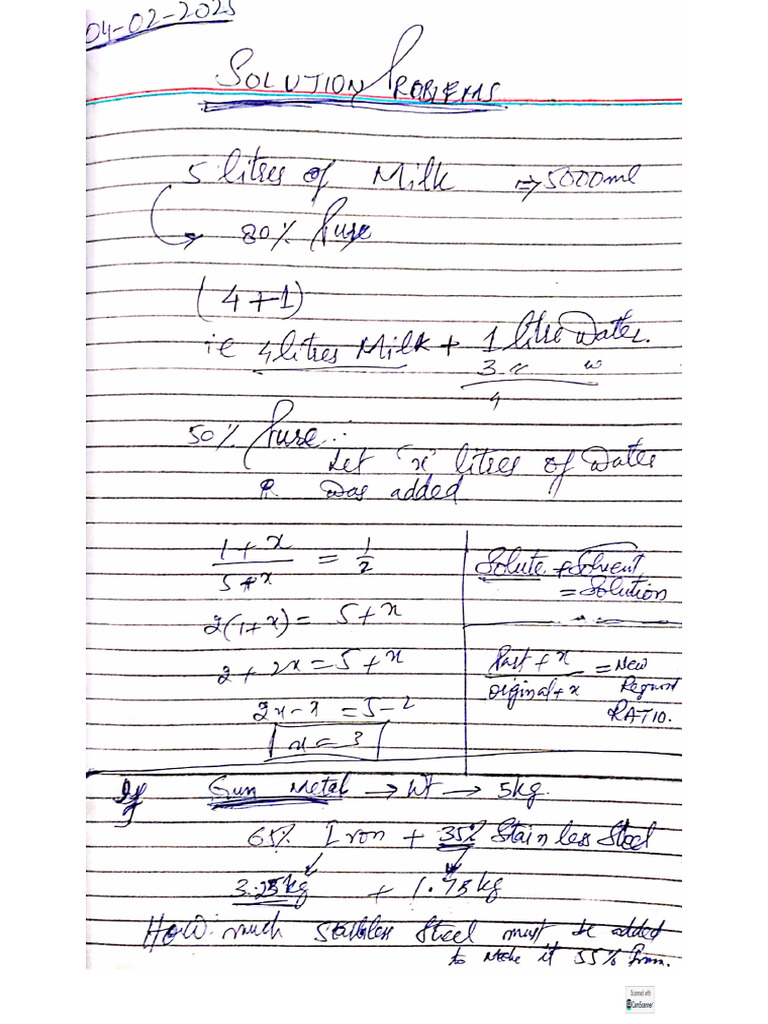 04-02-2025
SOLUTION PROBLEMS
5 litres of Milk ⇒ 5000ml
80% Pure
(4+1)
ie 4 litres Milk + 1 litre Water.
3 " "
4
50% Pure:
Let 'x' litres of Water
was added
1+x / 5+x = 1/2
2(1+x) = 5+x
2+2x = 5+x
2x-x = 5-2
x = 3
Solute + Solvent
= Solution
Part + x / Original + x = New
RATIO.
If Gun Metal → Wt → 5kg.
65% Iron + 35% Stainless Steel
3.25kg + 1.75kg
How much Stainless Steel must be added
to make it 55% Iron.
Scanned with
CamScanner